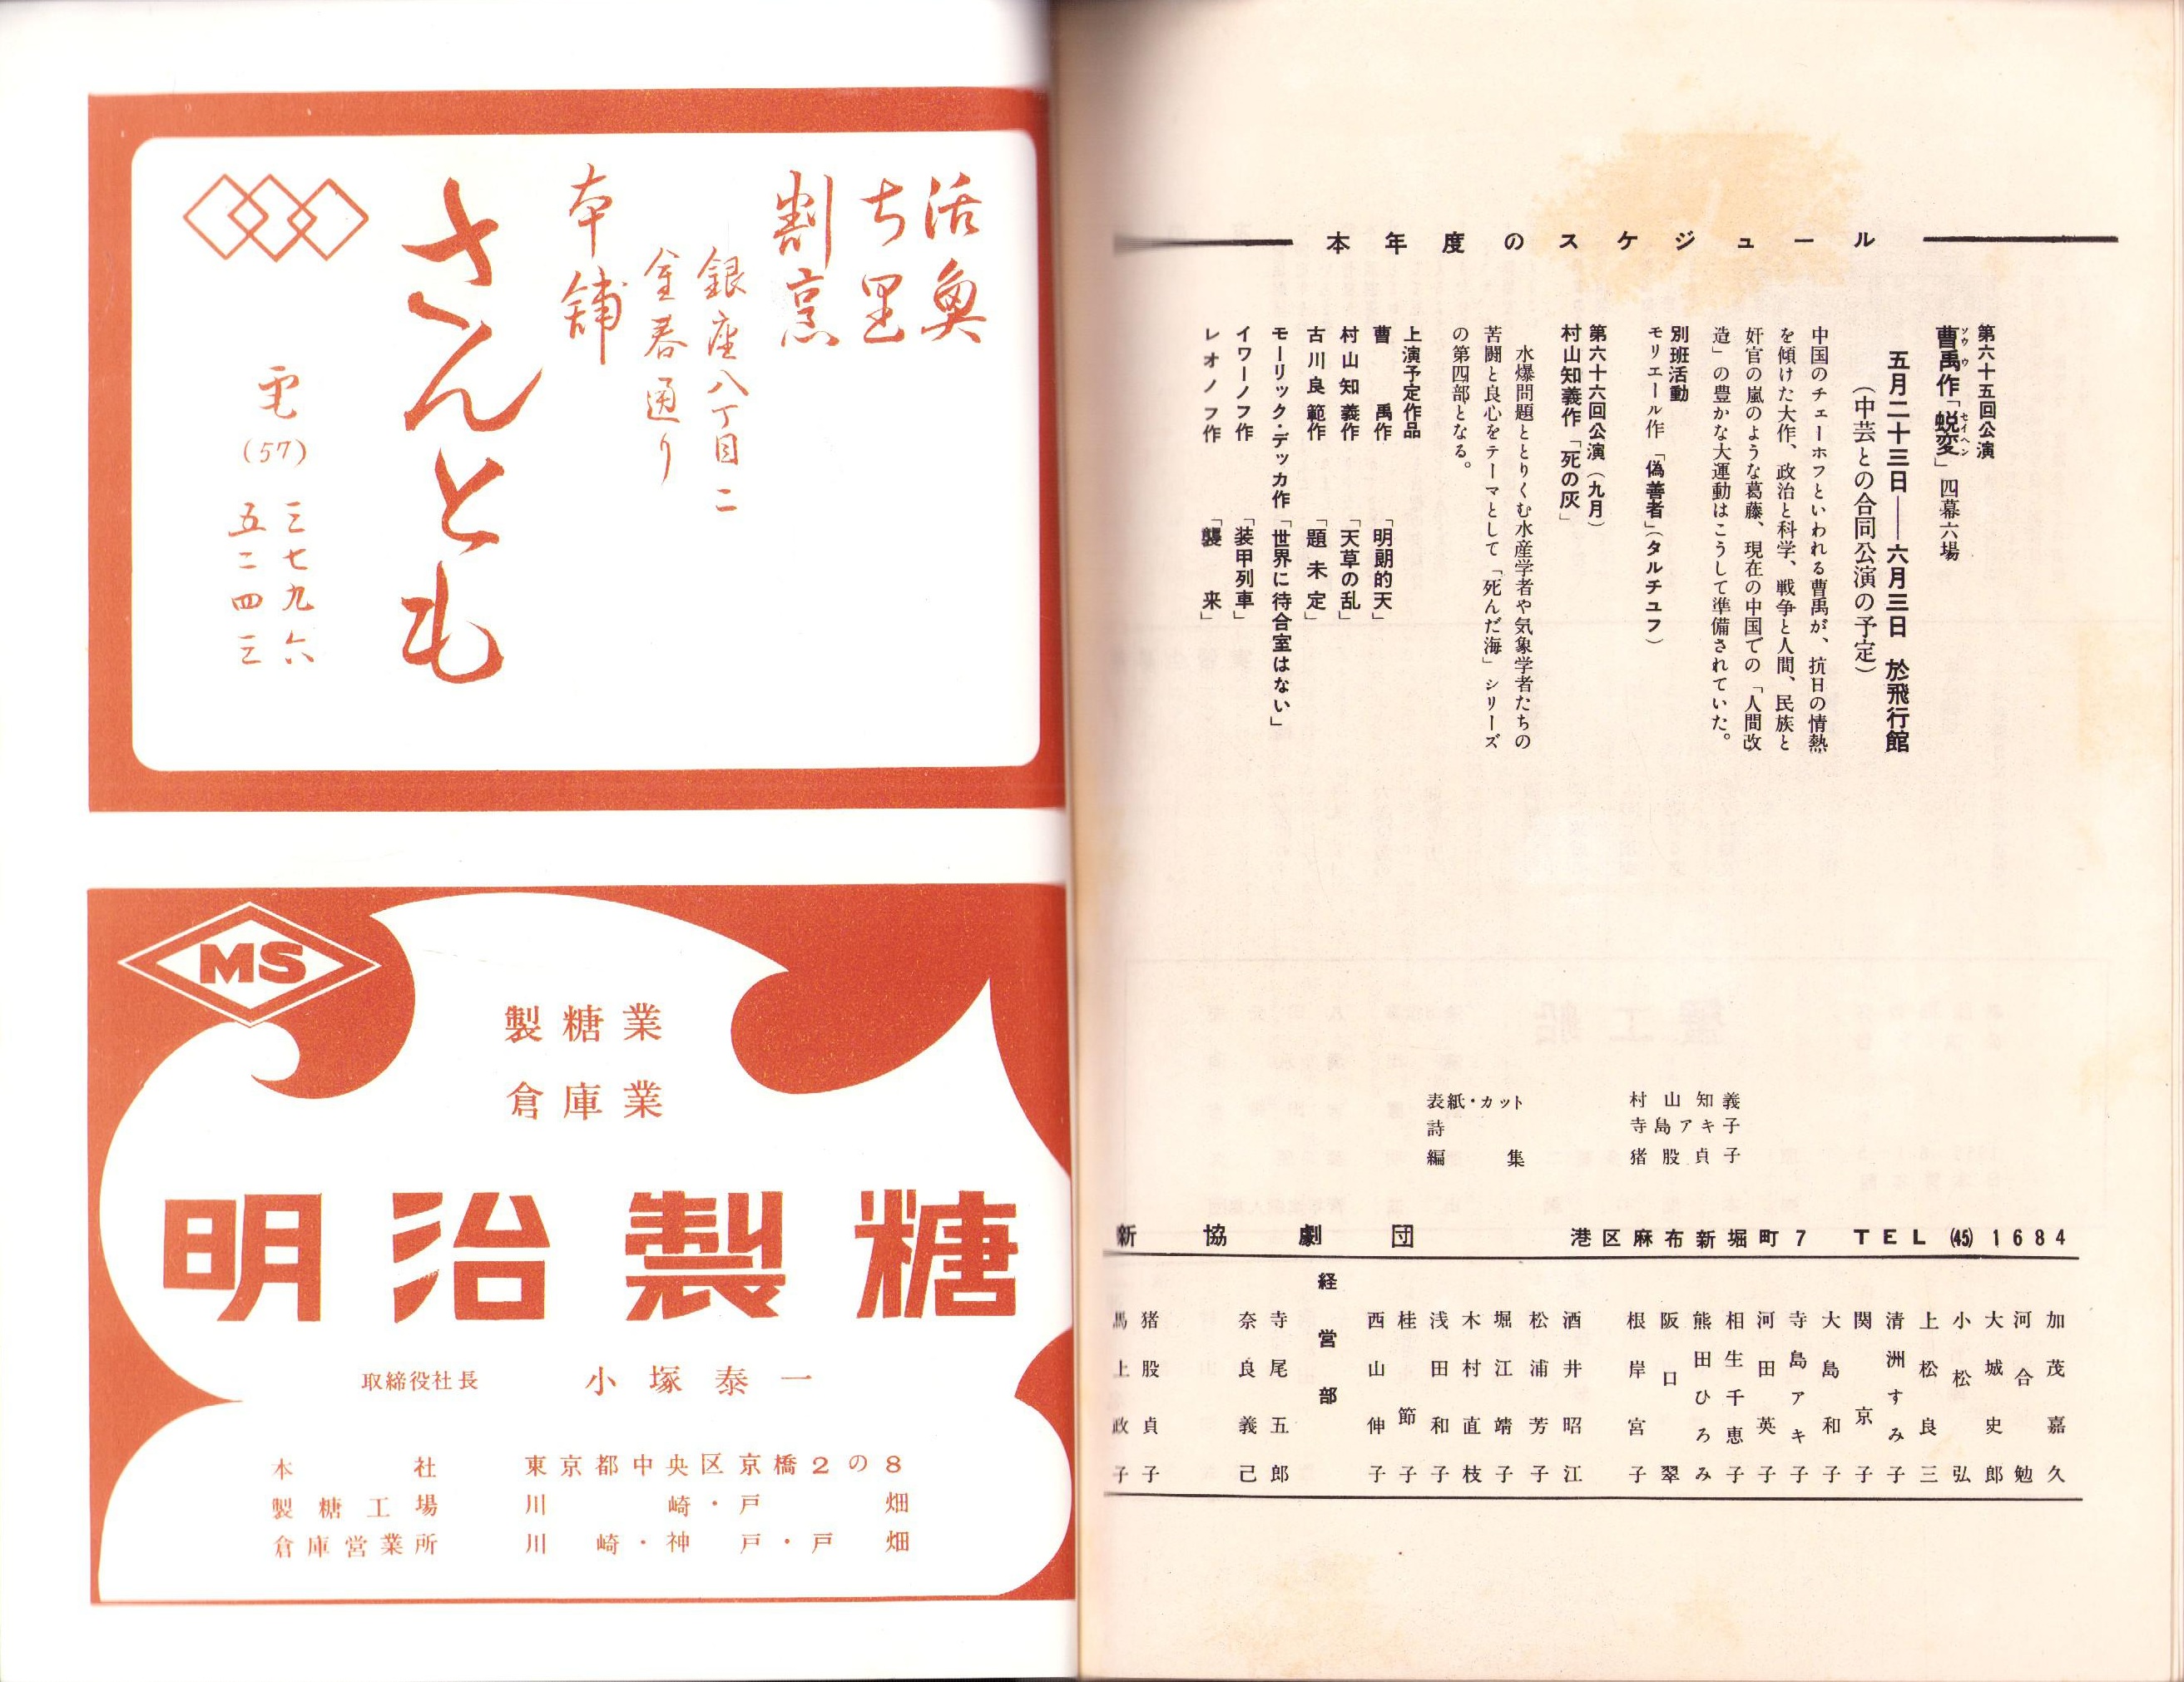 本年度のスケジュール
第六十五回公演
曹禺作「蜕変」四幕六場
ソウ ウ セイヘン
五月二十三日――六月三日 於飛行館
(中芸との合同公演の予定)
中国のチェーホフといわれる曹禺が、抗日の情熱
を傾けた大作、政治と科学、戦争と人間、民族と
奸官の嵐のような葛藤、現在の中国での「人間改
造」の豊かな大運動はこうして準備されていた。
別班活動
モリエール作「偽善者」(タルチュフ)
第六十六回公演(九月)
村山知義作「死の灰」
水爆問題ととりくむ水産学者や気象学者たちの
苦闘と良心をテーマとして「死んだ海」シリーズ
の第四部となる。
上演予定作品
曹禺作「明朗的天」
村山知義作「天草の乱」
古川良範作「題未定」
モーリック・デッカ作「世界に待合室はない」
イワーノフ作「装甲列車」
レオノフ作「襲来」
表紙・カット 村山知義
詩 寺島アキ子
編集 猪股貞子
新協劇団 港区麻布新堀町7 TEL (45) 1684
加茂嘉久
河合勉
大城史郎
小松弘
上松良三
清洲すみ子
関京子
大島和子
寺島アキ子
河田英子
相生千恵子
熊田ひろみ
阪口翠
根岸宮子
酒井昭江
松浦芳子
堀江靖子
木村直枝
浅田和子
桂節子
西山伸子
経営部
寺尾五郎
奈良義己
猪股貞子
馬上政子
活魚
ち里
割烹
銀座八丁目二
金春通り
本舗
さんとも
電(57)
三七九六
五二四三
MS
製糖業
倉庫業
明治製糖
取締役社長 小塚泰一
本社 東京都中央区京橋2の8
製糖工場 川崎・戸畑
倉庫営業所 川崎・神戸・戸畑